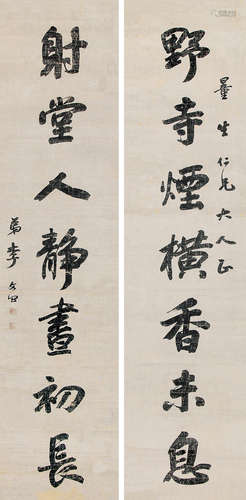 量生仁兄大人正
野寺煙橫香未息
射堂人靜晝初長
弟李